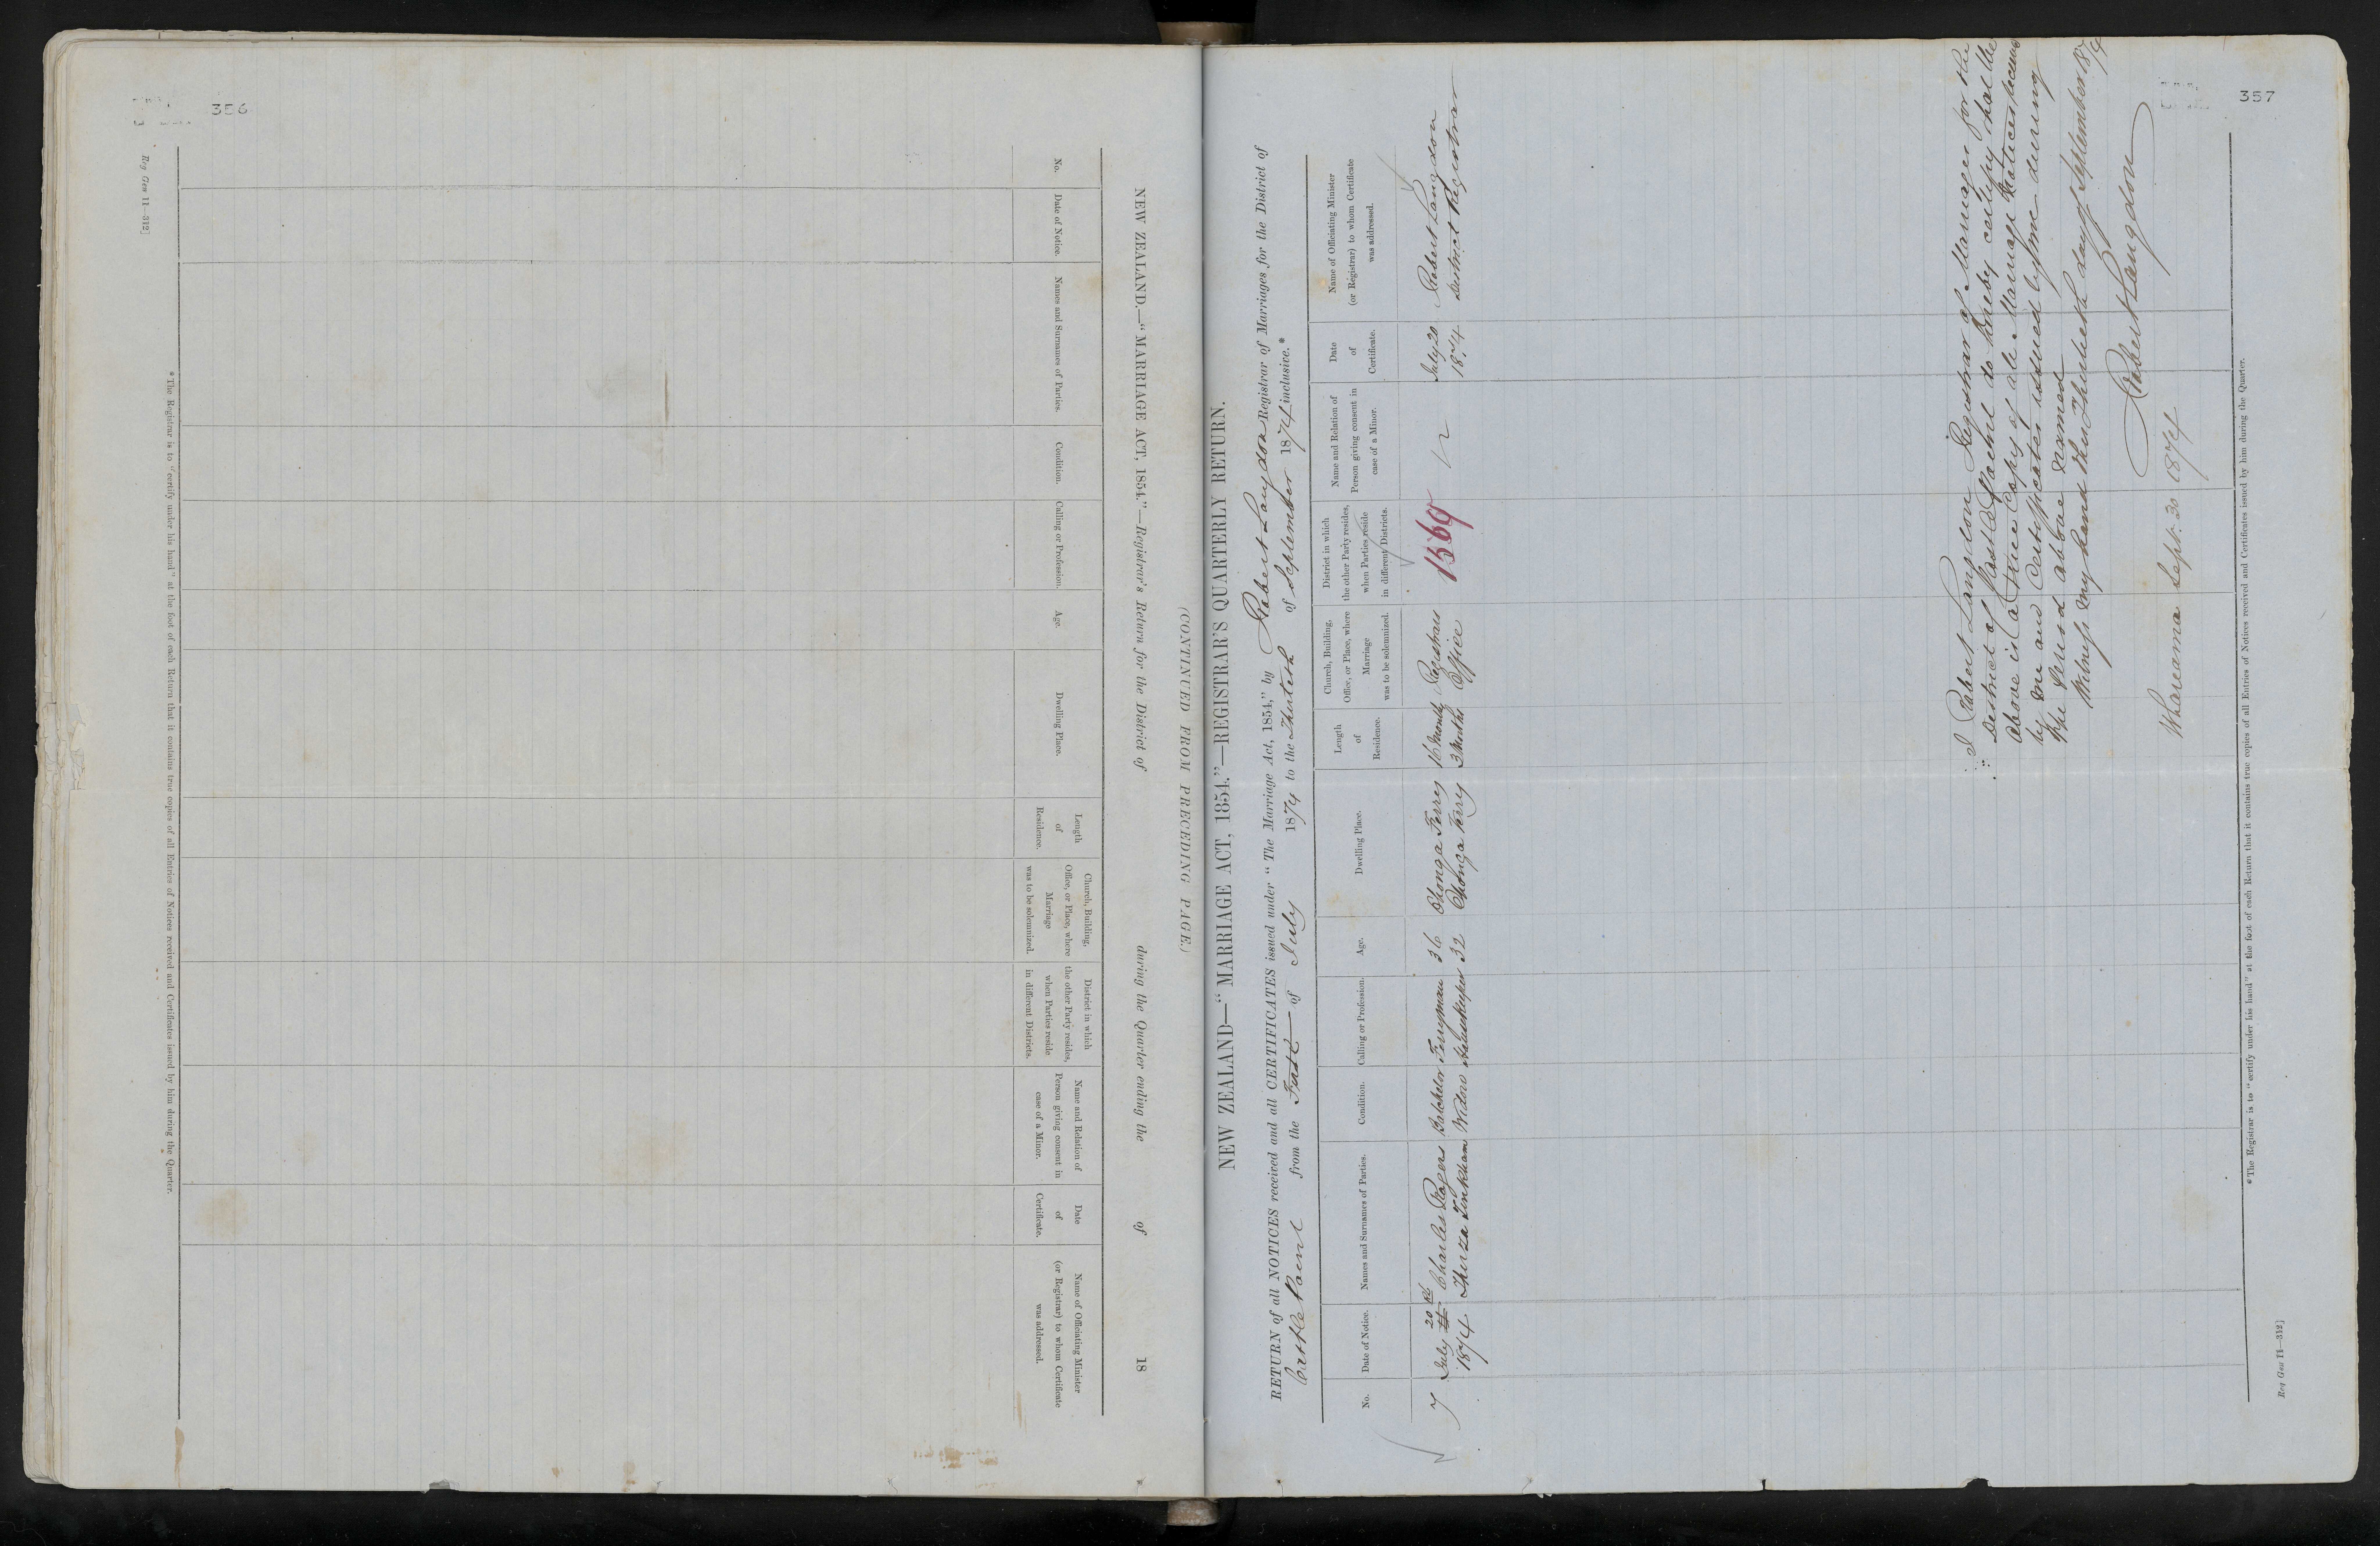 356
NEW ZEALAND.—"MARRIAGE ACT, 1854."—Registrar's Return for the District of during the Quarter ending the of 18
(CONTINUED FROM PRECEDING PAGE.)
No.
Date of Notice.
Names and Surnames of Parties.
Condition.
Calling or Profession.
Age.
Dwelling Place.
Length
of
Residence.
Church, Building,
Office, or Place, where
Marriage
was to be solemnized.
District in which
the other Party resides,
when Parties reside
in different Districts.
Name and Relation of
Person giving consent in
case of a Minor.
Date
of
Certificate.
Name of Officiating Minister
(or Registrar) to whom Certificate
was addressed.
*The Registrar is to "certify under his hand" at the foot of each Return that it contains true copies of all Entries of Notices received and Certificates issued by him during the Quarter.
Reg Gen 11—312]
357
NEW ZEALAND—"MARRIAGE ACT, 1854."—REGISTRAR'S QUARTERLY RETURN.
RETURN of all NOTICES received and all CERTIFICATES issued under "The Marriage Act, 1854," by Robert Langdon Registrar of Marriages for the District of
Castle Point from the First of July 1874 to the Thirtieth of September 1874 inclusive.*
No.
Date of Notice.
Names and Surnames of Parties.
Condition.
Calling or Profession.
Age.
Dwelling Place.
Length
of
Residence.
Church, Building,
Office, or Place, where
Marriage
was to be solemnized.
District in which
the other Party resides,
when Parties reside
in different Districts.
Name and Relation of
Person giving consent in
case of a Minor.
Date
of
Certificate.
Name of Officiating Minister
(or Registrar) to whom Certificate
was addressed.
7 July 20th Charles Rogers Batchelor Ferryman 36 Ahonga Ferry 16 Months Registrars 1569 July 20 Robert Langdon
1874 Thirza Tinkham Widow 32 Ahonga Ferry 3 Months Office 1874 District Registrar
I Robert Langdon Registrar of Marriages for the
District of Castle Point do hereby certify that the
above is a true Copy of all Marriage Notices received
by me and Certificates issued by me during
the period above named
Witness my hand this Thirtieth day of September 1874
Robert Langdon
Whareama Sept. 30 1874
*The Registrar is to "certify under his hand" at the foot of each Return that it contains true copies of all Entries of Notices received and Certificates issued by him during the Quarter.
Reg Gen 11—312]